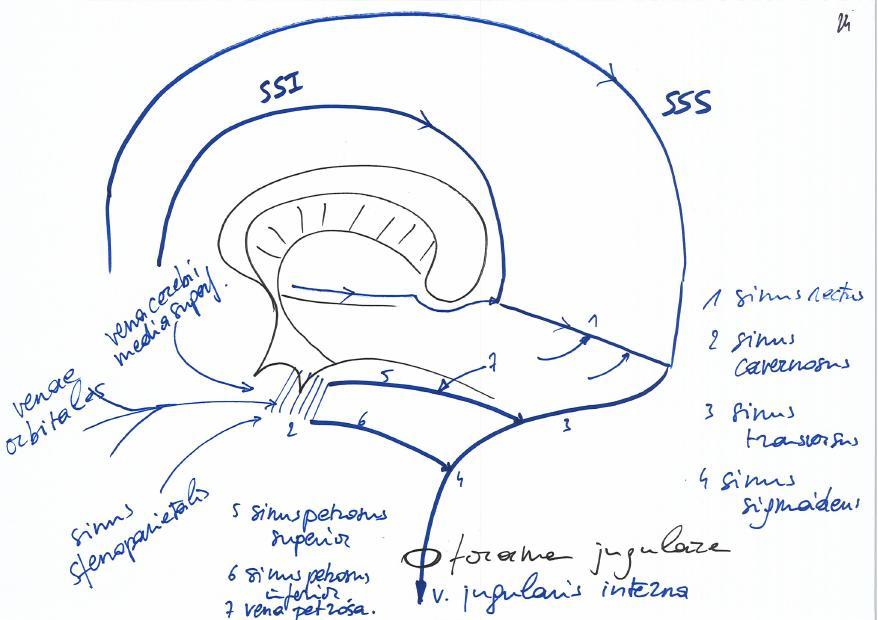 24
SSI
SSS
vena cerebri
media superf.
venae
orbitales
sinus
sfenoparietalis
1
2
3
4
5
6
7
1 sinus rectus
2 sinus
cavernosus
3 sinus
transversus
4 sinus
sigmoideus
5 sinus petrosus
superior
6 sinus petrosus
inferior
7 vena petrosa.
foramen jugulare
v. jugularis interna